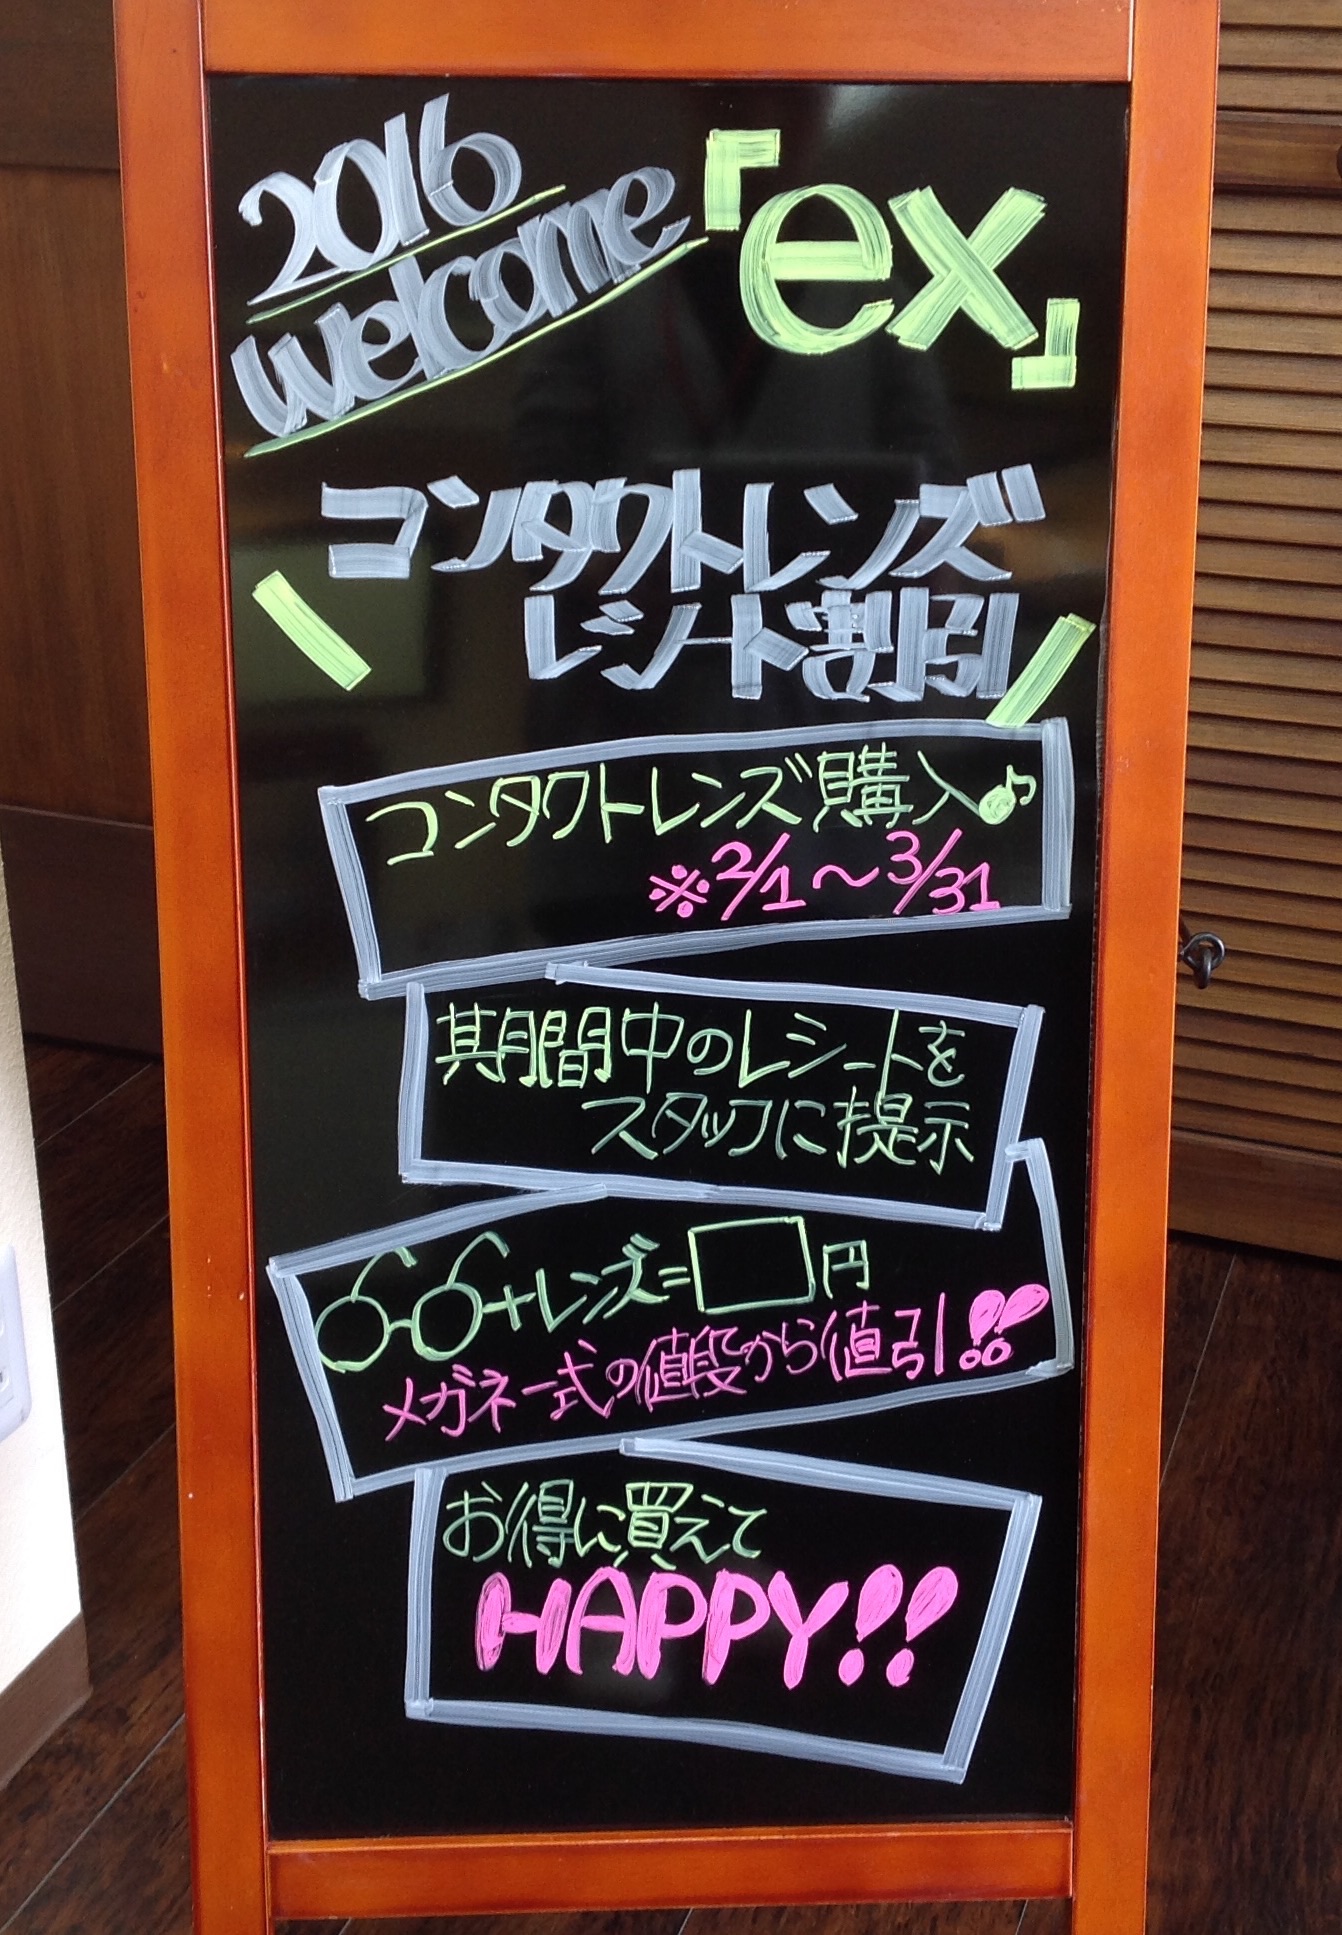 2016
welcome
『ex』
コンタクトレンズ
レシート割引
コンタクトレンズ購入♪
※2/1～3/31
期間中のレシートを
スタッフに提示
+レンズ=□円
メガネ一式の値段から値引!!
お得に買えて
HAPPY!!